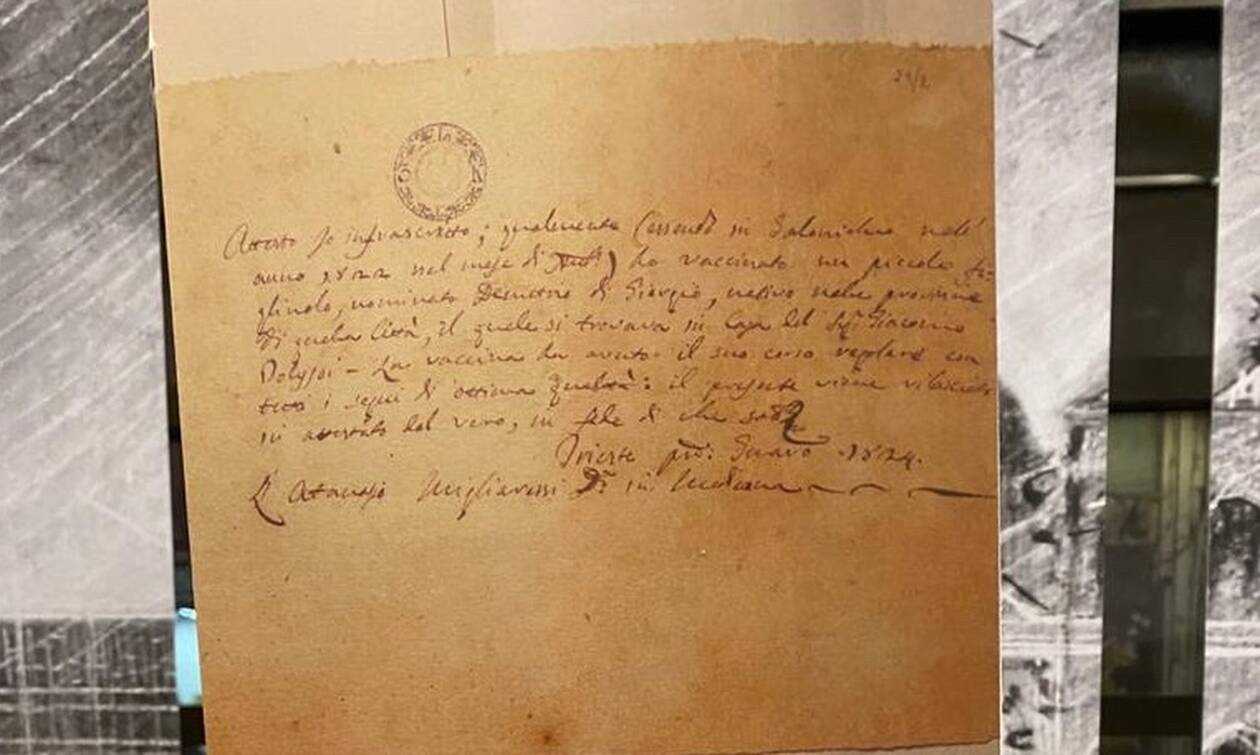 29/2
Attesto io infrascritto; qualmente (essendo in Salonichio nell'
anno 1822 nel mese di) ho vaccinato un piccolo fi=
gliuolo, nominato Demetrio di Giorgio, nativo nella provincia
di quella Città, il quale si trovava in Casa del Sigr. Giacomo
La vaccina ha avuto il suo corso regolare con
tutti i segni di ottima qualità: il presente viene rilasciato
in attestato del vero, in fede di che
Trieste 1824.
Dr. in Medicina